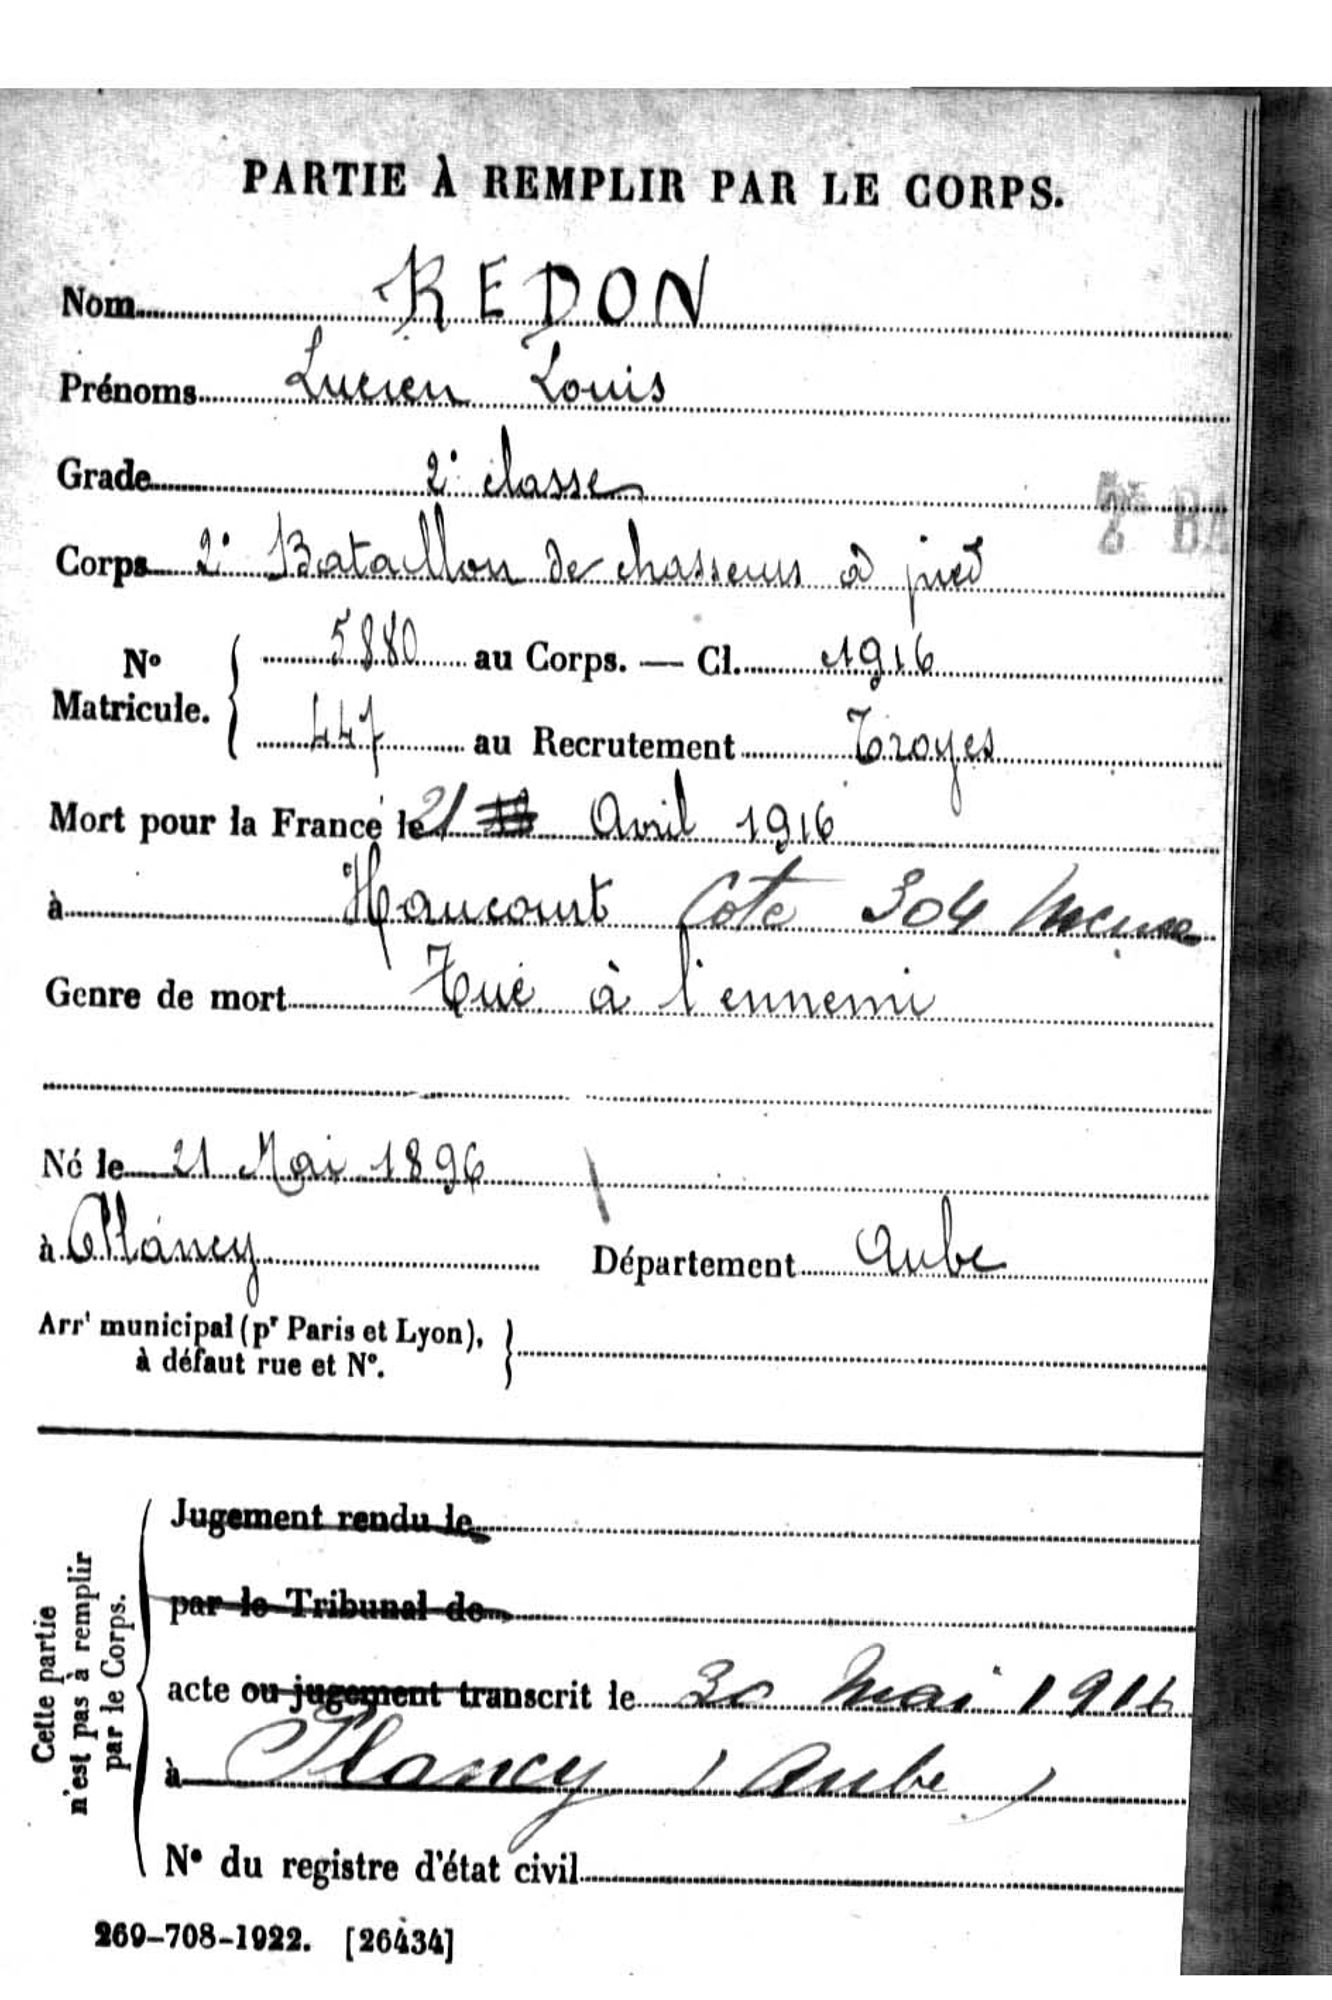 PARTIE À REMPLIR PAR LE CORPS.
Nom REDON
Prénoms Lucien Louis
Grade 2e classe
2e BA
Corps 2e Bataillon de chasseurs à pied
No Matricule. { 5880 au Corps. — Cl. 1916
447 au Recrutement Troyes
Mort pour la France le 21 Avril 1916
à Haucourt Cote 304 Meuse
Genre de mort Tué à l'ennemi
Né le 21 Mai 1896
à Plancy Département Aube
Arrt municipal (pr Paris et Lyon), }
à défaut rue et No.
Cette partie
n'est pas à remplir
par le Corps.
Jugement rendu le
par le Tribunal de
acte ou jugement transcrit le 30 Mai 1916
à Plancy (Aube)
No du registre d'état civil
269-708-1922. [26434]